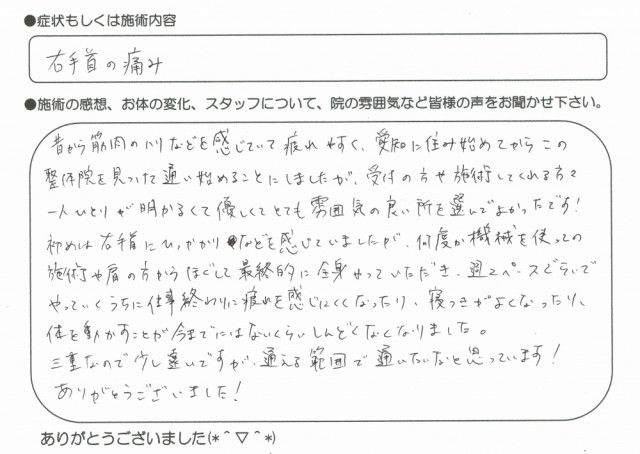 ●症状もしくは施術内容
右手首の痛み
●施術の感想、お体の変化、スタッフについて、院の雰囲気など皆様の声をお聞かせ下さい。
昔から筋肉のハリなどを感じていて疲れやすく、愛知に住み始めてからこの
整体院を見つけて通い始めることにしましたが、受付の方や施術してくれる方々
一人ひとりが明かるくて優しくてとても雰囲気の良い所を選んでよかったです!
初めは右手首にひっかかりなどを感じていましたが、何度か機械を使っての
施術や肩の方からほぐして最終的に全身やっていただき、週2ペースぐらいで
やっていくうちに仕事終わりに疲れを感じにくくなったり、寝つきがよくなったり、
体を動かすことが今までにはないくらいしんどくなくなりました。
三重なので少し遠いですが、通える範囲で通いたいなと思っています!
ありがとうございました!
ありがとうございました(*^▽^*)